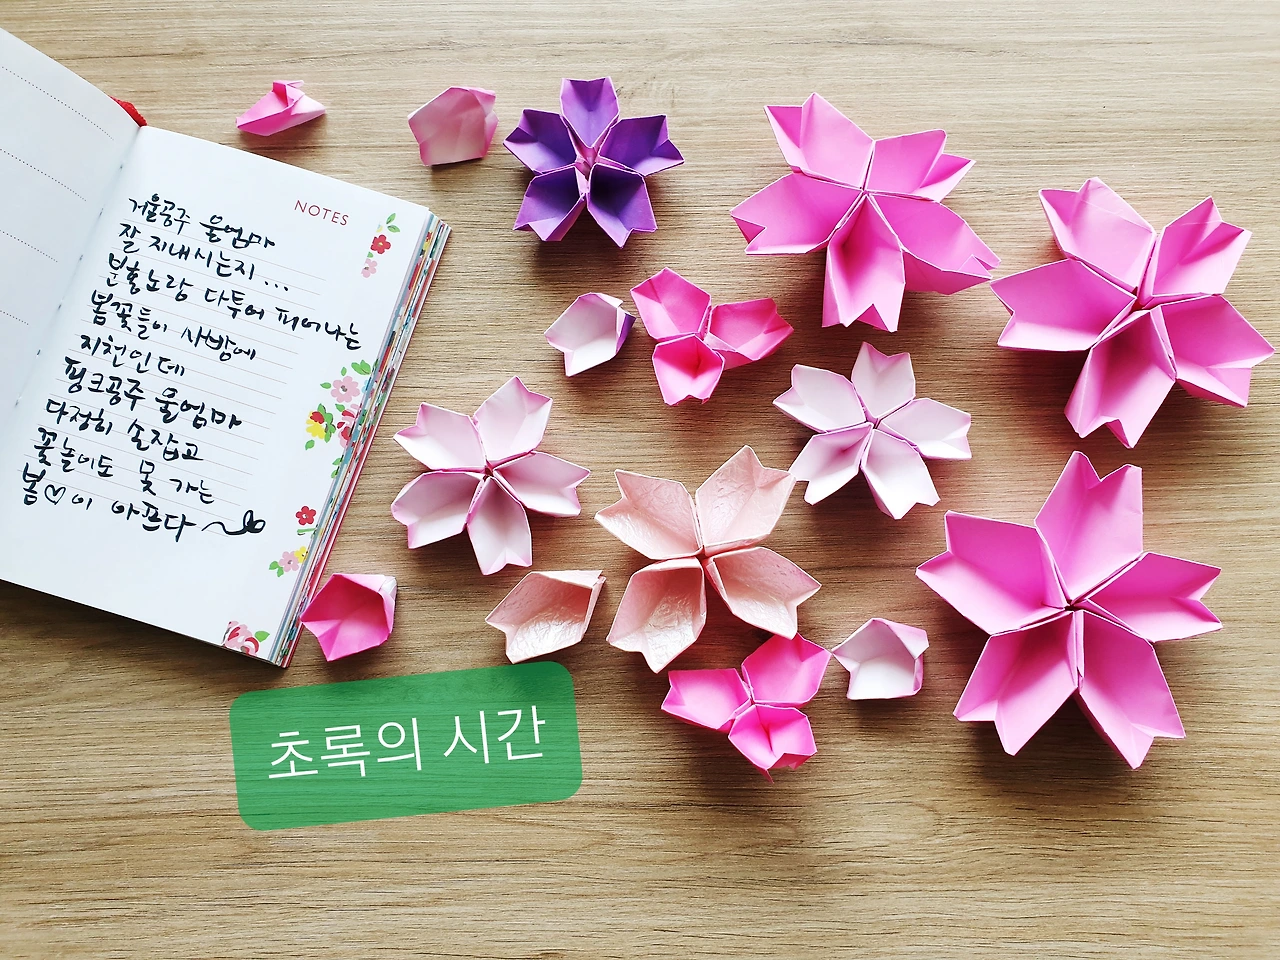 NOTES
겨울공주 울엄마
잘 지내시는지...
분홍노랑 다투어 피어나는
봄꽃들이 사방에
지천인데
핑크공주 울엄마
다정히 손잡고
꽃놀이도 못 가는
봄♡이 아프다~
초록의 시간